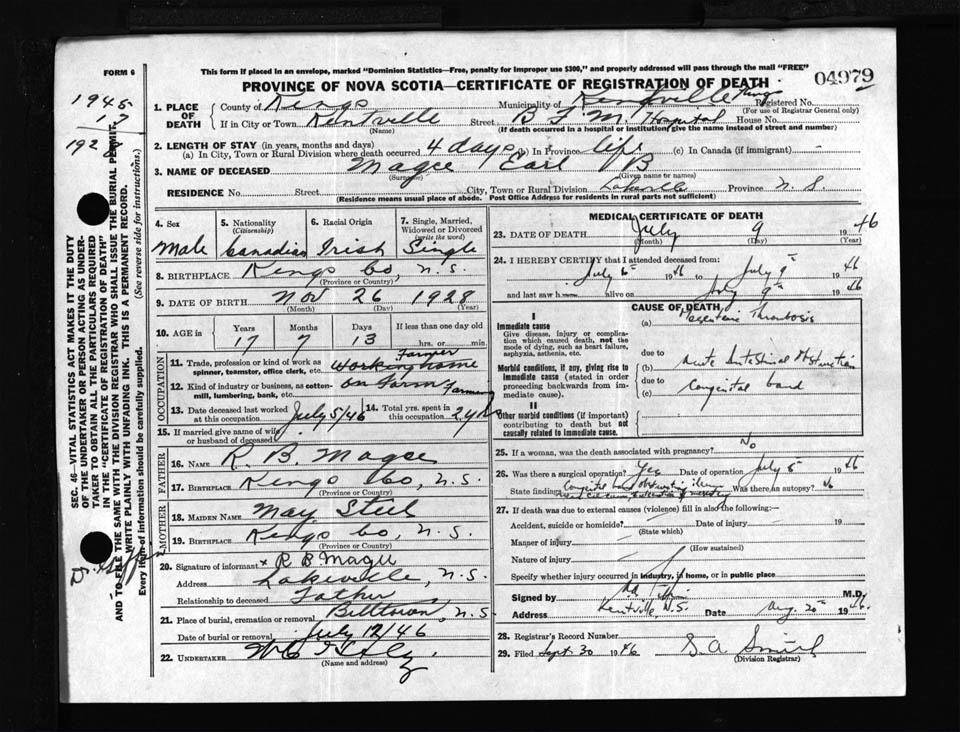 FORM 6
This form if placed in an envelope, marked "Dominion Statistics—Free, penalty for improper use $300," and properly addressed will pass through the mail "FREE"
PROVINCE OF NOVA SCOTIA—CERTIFICATE OF REGISTRATION OF DEATH
04979
1945
17
192
SEC. 46—VITAL STATISTICS ACT MAKES IT THE DUTY
OF THE UNDERTAKER OR PERSON ACTING AS UNDER-
TAKER TO OBTAIN ALL THE PARTICULARS REQUIRED
IN THE "CERTIFICATE OF REGISTRATION OF DEATH"
AND TO FILE THE SAME WITH THE DIVISION REGISTRAR WHO SHALL ISSUE THE BURIAL PERMIT.
WRITE PLAINLY WITH UNFADING INK. THIS IS A PERMANENT RECORD.
Every item of information should be carefully supplied. (See reverse side for instructions.)
1. PLACE OF DEATH
County of Kings Municipality of Kings Registered No.
(For use of Registrar General only)
If in City or Town Kentville Street B F M Hospital House No.
(Name) (If death occurred in a hospital or institution give the name instead of street and number)
2. LENGTH OF STAY (in years, months and days)
(a) In City, Town or Rural Division where death occurred 4 days (b) In Province life (c) In Canada (if immigrant) -
3. NAME OF DECEASED Magee Earl B
(Surname) (Given name or names)
RESIDENCE No. Street City, Town or Rural Division Lakeville Province N. S.
(Residence means usual place of abode. Post Office Address for residents in rural parts not sufficient)
4. Sex Male
5. Nationality (Citizenship) Canadian
6. Racial Origin Irish
7. Single, Married, Widowed or Divorced (write the word) Single
8. BIRTHPLACE Kings Co, N.S.
(Province or Country)
9. DATE OF BIRTH Nov 26 1928
(Month) (Day) (Year)
10. AGE in Years Months Days If less than one day old
17 7 13 hrs. or min.
OCCUPATION
11. Trade, profession or kind of work as spinner, teamster, office clerk, etc. Farmer
12. Kind of industry or business, as cotton-mill, lumbering, bank, etc. on Farm Farming
13. Date deceased last worked at this occupation July 5/46
14. Total yrs. spent in this occupation 2 yrs
15. If married give name of wife or husband of deceased
FATHER
16. NAME R. B. Magee
17. BIRTHPLACE Kings Co, N.S.
(Province or Country)
MOTHER
18. MAIDEN NAME May Steel
19. BIRTHPLACE Kings Co, N.S.
(Province or Country)
20. Signature of informant x R B Magee
Address Lakeville, N.S.
Relationship to deceased Father
21. Place of burial, cremation or removal Billtown, N.S.
Date of burial or removal July 12/46
22. UNDERTAKER
(Name and address)
MEDICAL CERTIFICATE OF DEATH
23. DATE OF DEATH July 9 1946
(Month) (Day) (Year)
24. I HEREBY CERTIFY that I attended deceased from:
July 6th 1946 to July 9th 1946
and last saw h alive on July 9th 1946
CAUSE OF DEATH
I
Immediate cause
Give disease, injury or complication which caused death, not the mode of dying, such as heart failure, asphyxia, asthenia, etc.
(a) Mesenteric Thrombosis
due to
Morbid conditions, if any, giving rise to immediate cause (stated in order proceeding backwards from immediate cause).
(b) Acute Intestinal Obstruction
due to
(c) Congenital band
II
Other morbid conditions (if important) contributing to death but not causally related to immediate cause.
25. If a woman, was the death associated with pregnancy? No
26. Was there a surgical operation? Yes Date of operation July 6 1946
State findings Congenital band obstructing ileum Was there an autopsy? No
27. If death was due to external causes (violence) fill in also the following:—
Accident, suicide or homicide? Date of injury 19
(State which)
Manner of injury
(How sustained)
Nature of injury
Specify whether injury occurred in industry, in home, or in public place
Signed by M.D.
Address Kentville, N.S. Date Aug. 20th 1946
28. Registrar's Record Number
29. Filed Sept 30 1946 S. A. Smith
(Division Registrar)